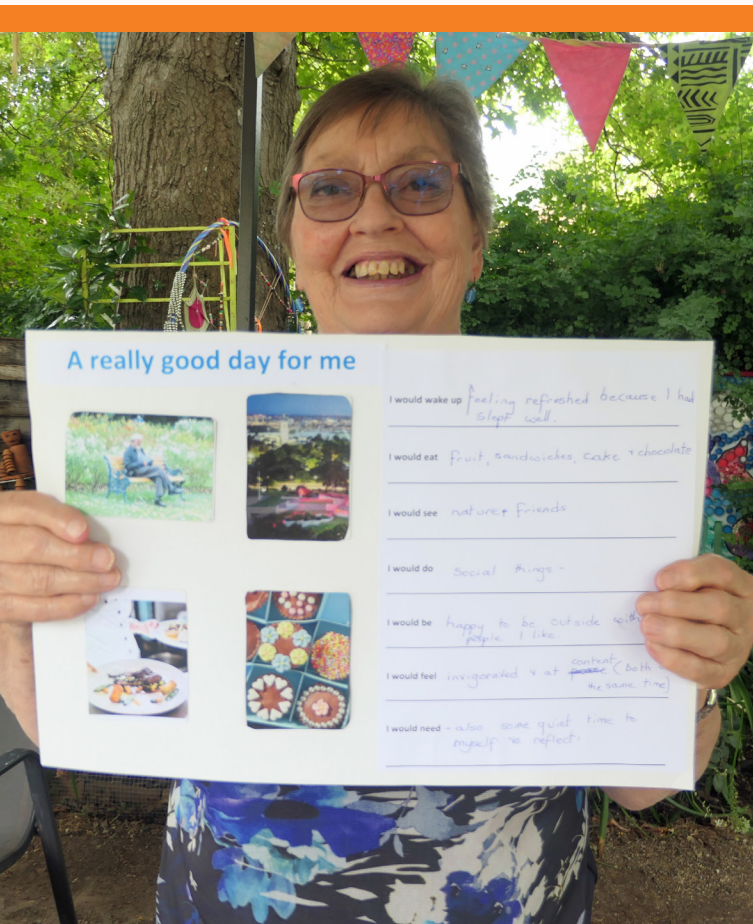 A really good day for me
I would wake up feeling refreshed because I had
slept well.
I would eat fruit, sandwiches, cake + chocolate
I would see nature + friends
I would do social things -
I would be happy to be outside with
people I like
I would feel invigorated + at content (both
the same time)
I would need - also some quiet time to
myself to reflect.